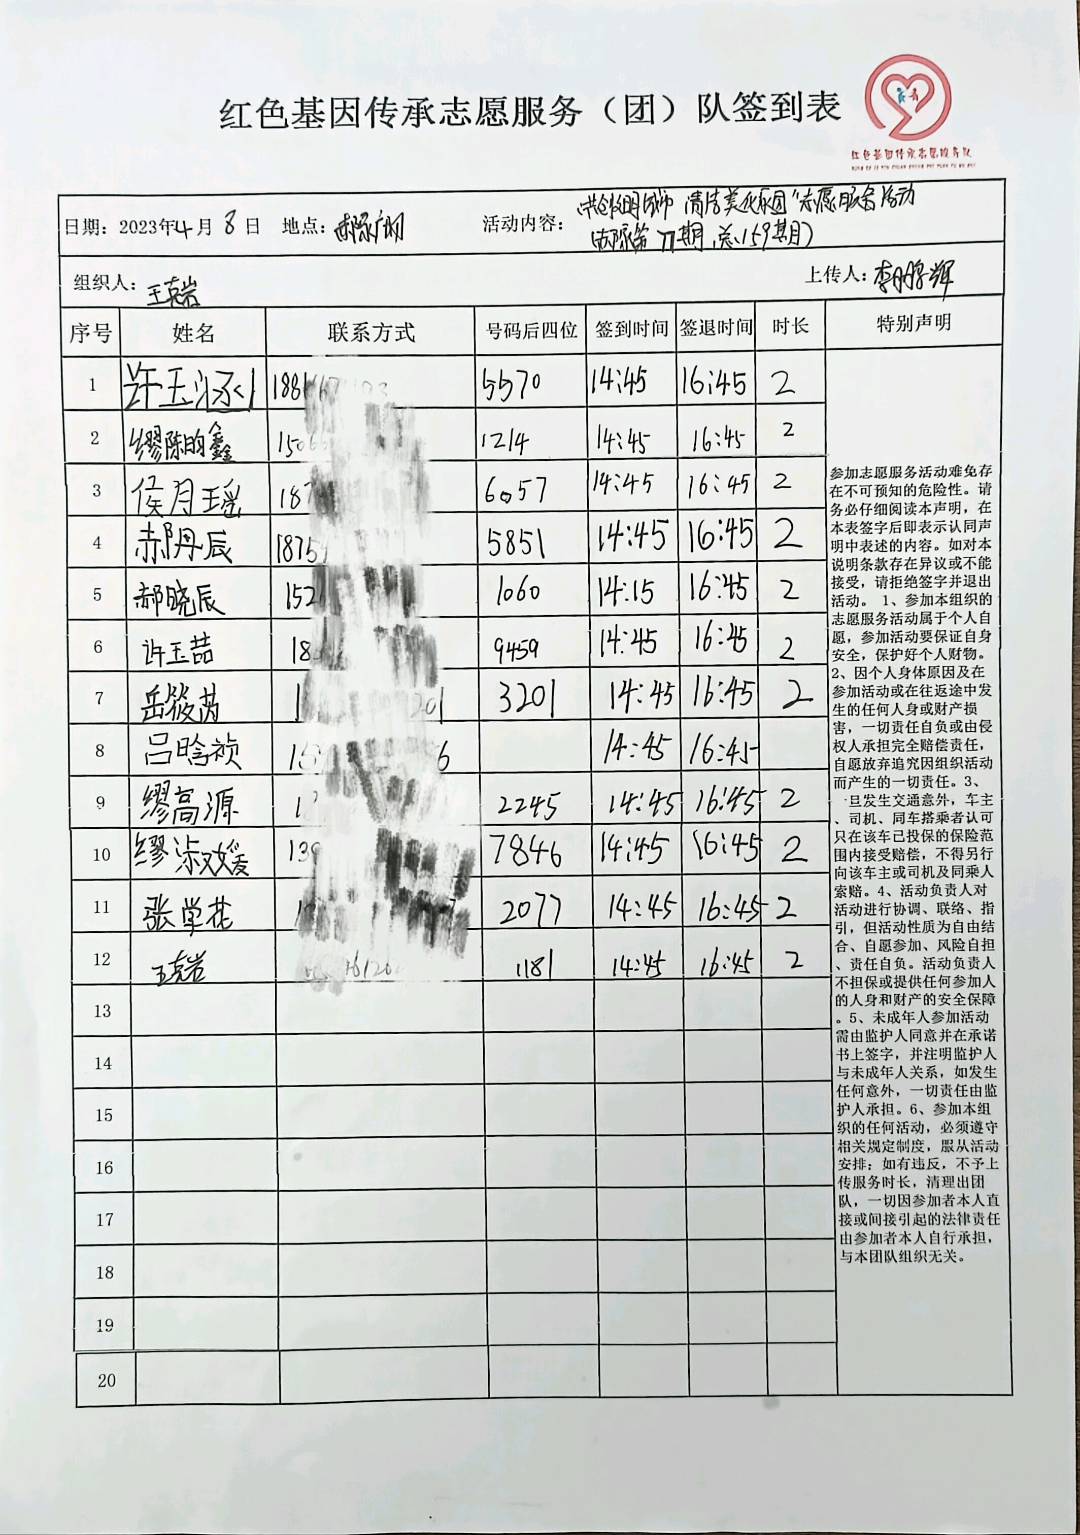 红色基因传承志愿服务（团）队签到表
红色基因传承志愿服务队
日期：2023年4月8日 地点： 活动内容：共创文明城市 清洁美化家园"志愿服务活动
期，总159期）
组织人：王克岩 上传人：李鹏辉
序号 姓名 联系方式 号码后四位 签到时间 签退时间 时长 特别声明
1 许玉涵 188 5570 14:45 16:45 2
2 缪陈昀鑫 150 1214 14:45 16:45 2
3 侯月瑶 187 6057 14:45 16:45 2
4 郝丹辰 1875 5851 14:45 16:45 2
5 郝晓辰 152 1060 14:15 16:45 2
6 许玉喆 18 9459 14:45 16:45 2
7 岳筱芮 1 201 3201 14:45 16:45 2
8 吕晗祯 15 6 14:45 16:45
9 缪高源 1 2245 14:45 16:45 2
10 缪淑媛 139 7846 14:45 16:45 2
11 张学花 1 2077 14:45 16:45 2
12 王克岩 1181 14:45 16:45 2
13
14
15
16
17
18
19
20
参加志愿服务活动难免存
在不可预知的危险性。请
务必仔细阅读本声明，在
本表签字后即表示认同声
明中表述的内容。如对本
说明条款存在异议或不能
接受，请拒绝签字并退出
活动。 1、参加本组织的
志愿服务活动属于个人自
愿，参加活动要保证自身
安全，保护好个人财物。
2、因个人身体原因及在
参加活动或在往返途中发
生的任何人身或财产损
害，一切责任自负或由侵
权人承担完全赔偿责任，
自愿放弃追究因组织活动
而产生的一切责任。3、
一旦发生交通意外，车主
、司机、同车搭乘者认可
只在该车已投保的保险范
围内接受赔偿，不得另行
向该车主或司机及同乘人
索赔。4、活动负责人对
活动进行协调、联络、指
引，但活动性质为自由结
合、自愿参加、风险自担
、责任自负。活动负责人
不担保或提供任何参加人
的人身和财产的安全保障
。5、未成年人参加活动
需由监护人同意并在承诺
书上签字，并注明监护人
与未成年人关系，如发生
任何意外，一切责任由监
护人承担。6、参加本组
织的任何活动，必须遵守
相关规定制度，服从活动
安排；如有违反，不予上
传服务时长，清理出团
队，一切因参加者本人直
接或间接引起的法律责任
由参加者本人自行承担，
与本团队组织无关。